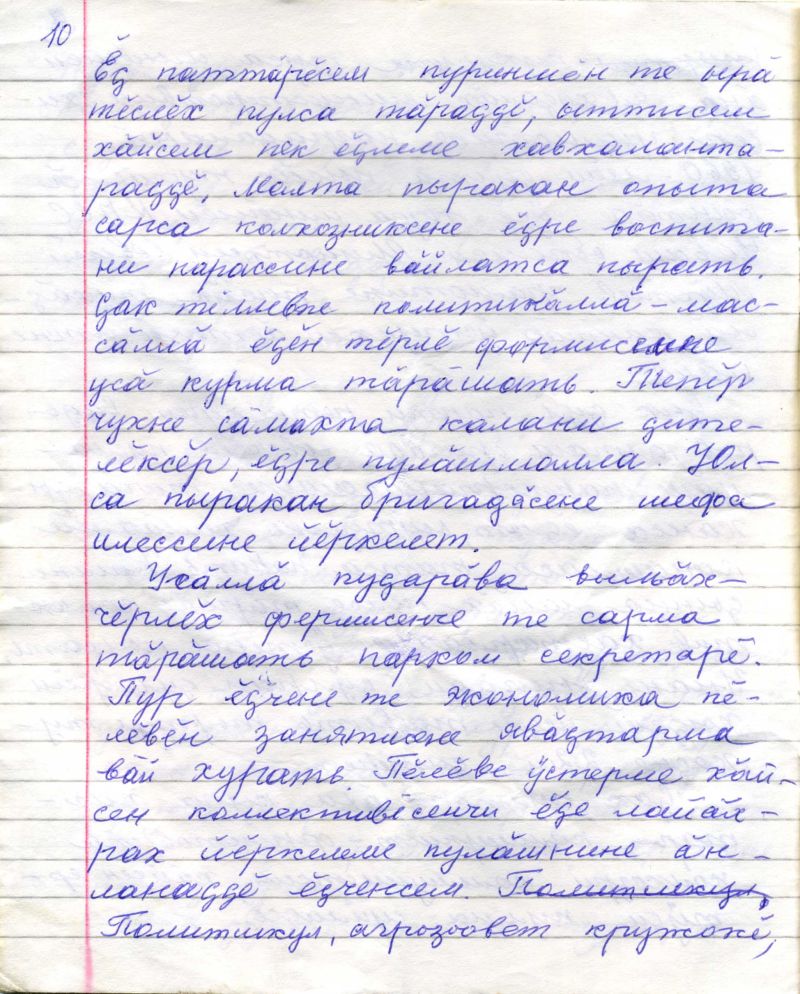 10
Ӗҫ паттӑрӗсем пуриншӗн те ырӑ
тӗслӗх пулса тӑраҫҫӗ, ыттисем
хӑйсем пек ӗҫлеме хавхаланта-
раҫҫӗ. Малта пыракан опыта
сарса колхозниксене ӗҫре воспита-
ни парассине вӑйлатса пырать.
Ҫак тӗллевпе политикӑллӑ-мас-
сӑллӑ ӗҫӗн тӗрлӗ формисемпе
усӑ курма тӑрӑшать. Тепӗр
чухне сӑмахпа калани ҫите-
лӗксӗр, ӗҫре пулӑшмалла. Юл-
са пыракан бригадӑсене шефа
илессине йӗркелет.
Усӑллӑ пуҫарӑва выльӑх-
чӗрлӗх фермисенче те сарма
тӑрӑшать парком секретарӗ.
Пур ӗҫчене те экономика пӗ-
лӗвӗн занятине явӑҫтарма
вӑй хурать. Пӗлӗве ӳстерме хӑй-
сен коллективӗсенчи ӗҫе лайӑх-
рах йӗркелеме пулӑшнине ӑн-
ланаҫҫӗ ӗҫченсем. Политшкул,
Политшкул, агрозоовет кружокӗ,